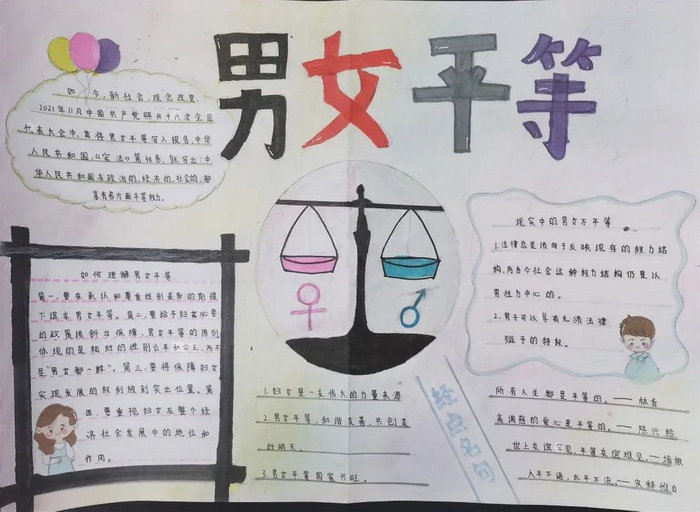 男女平等
如今,新社会,观念改变
2021年11月中国共产党第十八次全国
代表大会中,首将男女平等写入报告,中华
人民共和国,《宪法》第48条,就写出:中
华人民共和国在政治的,经济的,社会的,都
享有各方面平等权力。
如何理解男女平等
第一,要在承认和尊重性别差异的前提
下追求男女平等。第二,要给予妇女必要
的政策倾斜与保障,男女平等的原则
体现的是相对的性别公平和公正,而不
是"男女都一样"。第三,要将保障妇女
实现发展的权利放到突出位置,第
四,要重视妇女在整个经
济社会发展中的地位和
作用。
现实中的男女不平等
1.法律总是倾向于反映现存的权力结
构,而当今社会这种权力结构仍是以
男性为中心的。
2.男子可以享有无须法律
赋予的特权。
1.妇女是一支伟大的力量来源
2.男女平等,和谐友善,共创美
好明天。
3.男女平等国家兴旺。
经典名句
所有人生都是平等的。——林肯
高调愿的爱心是平等的。——
世上友谊罕见,平等友谊难见。——培根
人平不语,水平不流。——